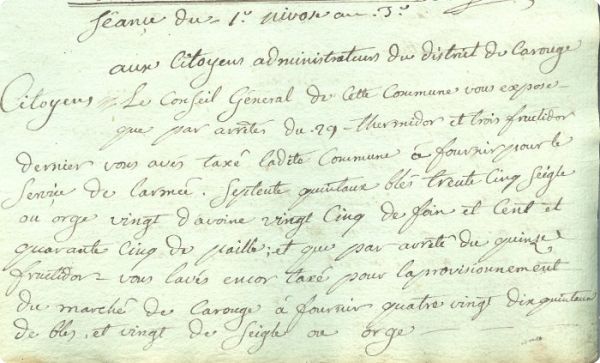 Séance du 1r nivose an 3e
aux Citoyens administrateurs du district de Carouge
Citoyens Le Conseil Général de Cette Commune vous expose
que par arrêtés du 29 thermidor et trois fructidor
dernier vous avés taxé ladite Commune a fournir pour le
Service de larmée. Septente quintaux blés trente Cinq Seigle
ou orge vingt d'avoine vingt Cinq de foin et Cent et
quarante Cinq de paille; et que par arrêté du quinze
fructidor vous lavés encor taxé pour laprovisionnement
du marché de Carouge à fournir quatre vingt dix quintaux
de bles, et vingt de Seigle ou orge